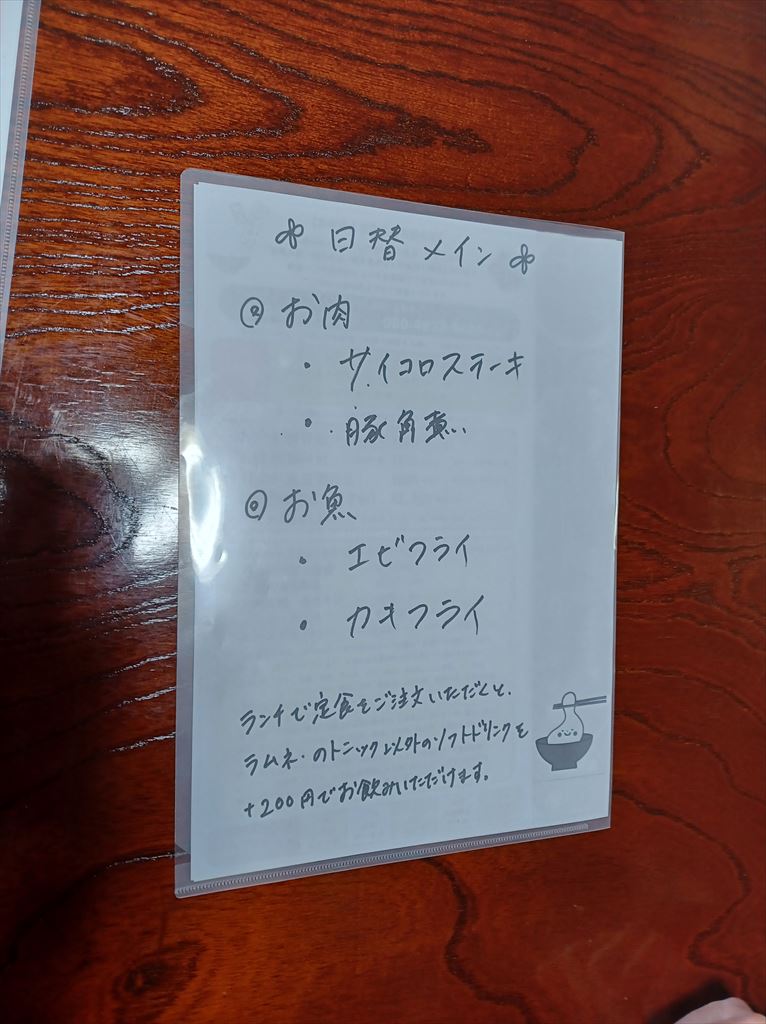 日替メイン
◎お肉
・サイコロステーキ
・豚角煮
◎お魚
・エビフライ
・カキフライ
ランチで定食をご注文いただくと、
ラムネ・のトニック以外のソフトドリンクを
+200円でお飲みいただけます。